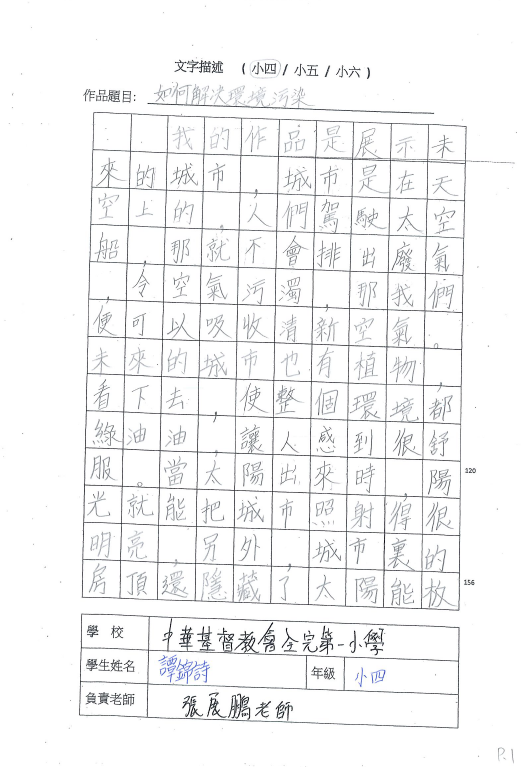 文字描述 ( 小四 / 小五 / 小六 )
作品題目: 如何解決環境污染
我的作品是展示未
來的城市，城市是在天
空上的。人們駕駛太空
船，那就不會排出廢氣
，令空氣污濁，那我們
便可以吸收清新空氣。
未來的城市也有植物，
看下去，使整個環境都
綠油油，讓人感到很舒
服。當太陽出來時，陽
120
光就能把城市照射得很
明亮，另外，城市裏的
房頂還隱藏了太陽能板
156
學校 中華基督教會全完第一小學
學生姓名 譚錦詩 年級 小四
負責老師 張展鵬老師
P.1